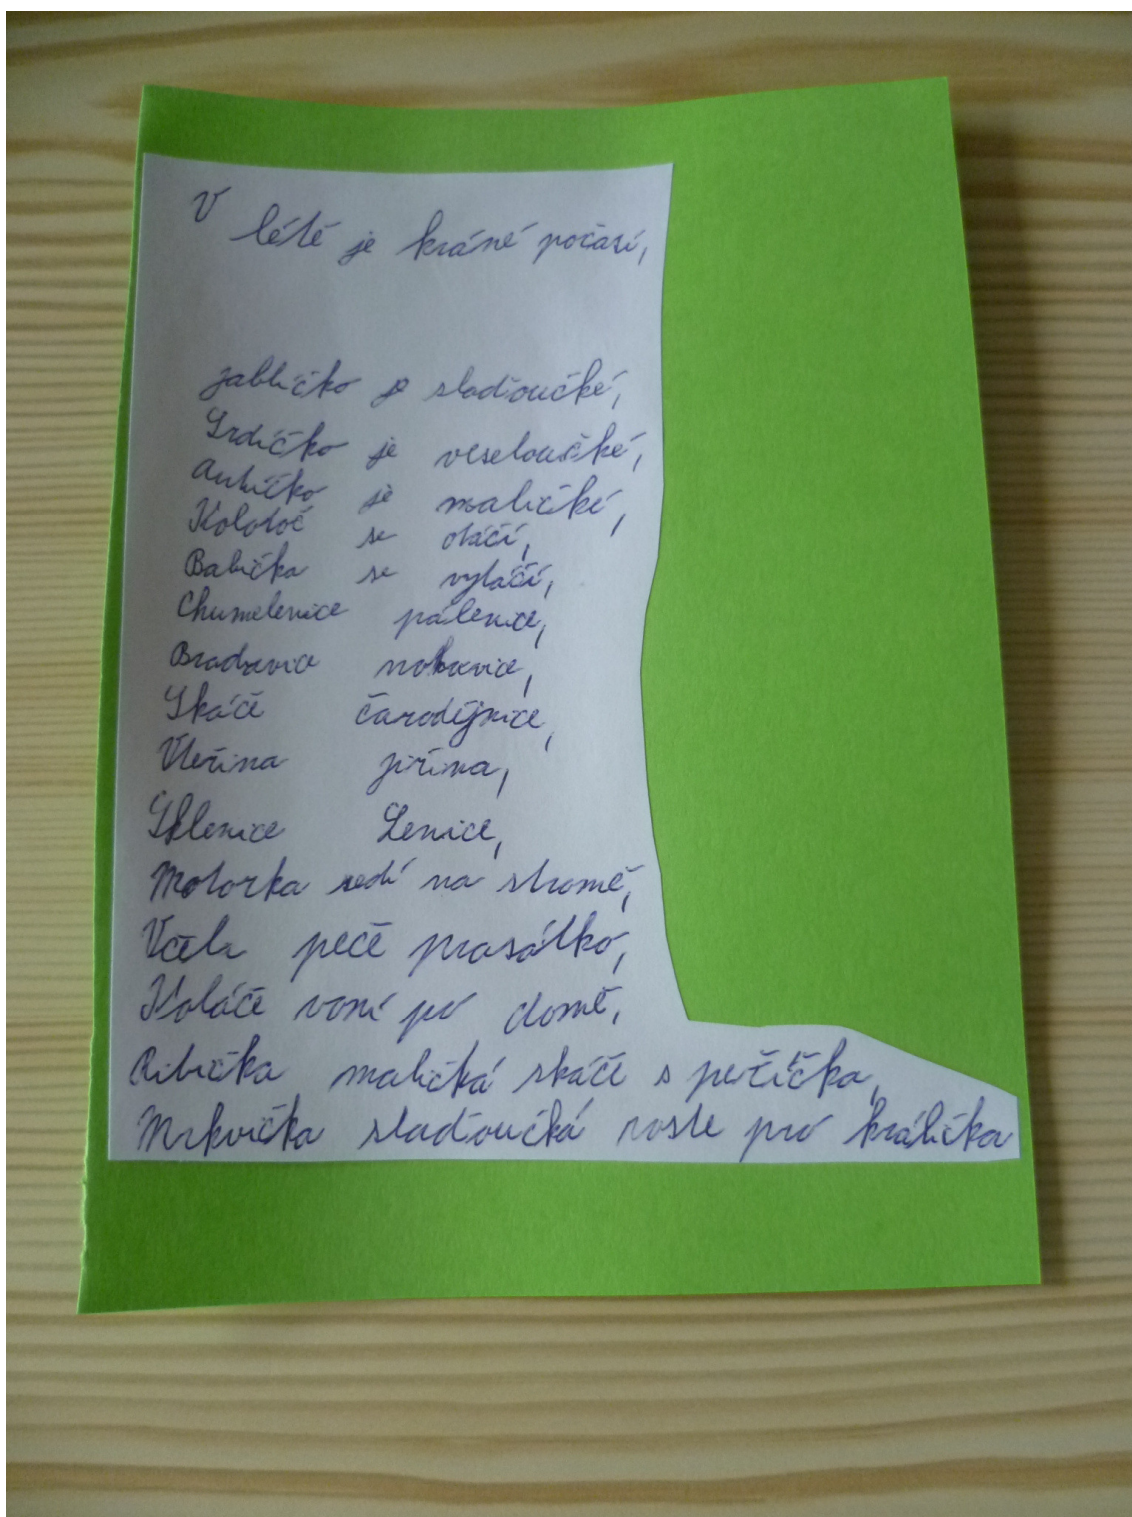 V
lété je kráné počasí,
jabličko je sladoučké,
Srdíčko je veseloučké,
Autíčko je maličké,
Kolotoč se otáčí,
Babička se vytáčí,
Chumelenice pálenice,
Bradavice nohavice,
Skáče čarodějnice,
Vteřina jiřina,
Sklenice Lenice,
Motorka sedí na stromě,
Včela peče prasátko,
Koláče voní po domě,
Ribička maličká skáče s peříčka,
Mrkvička sladoučká roste pro králíčka